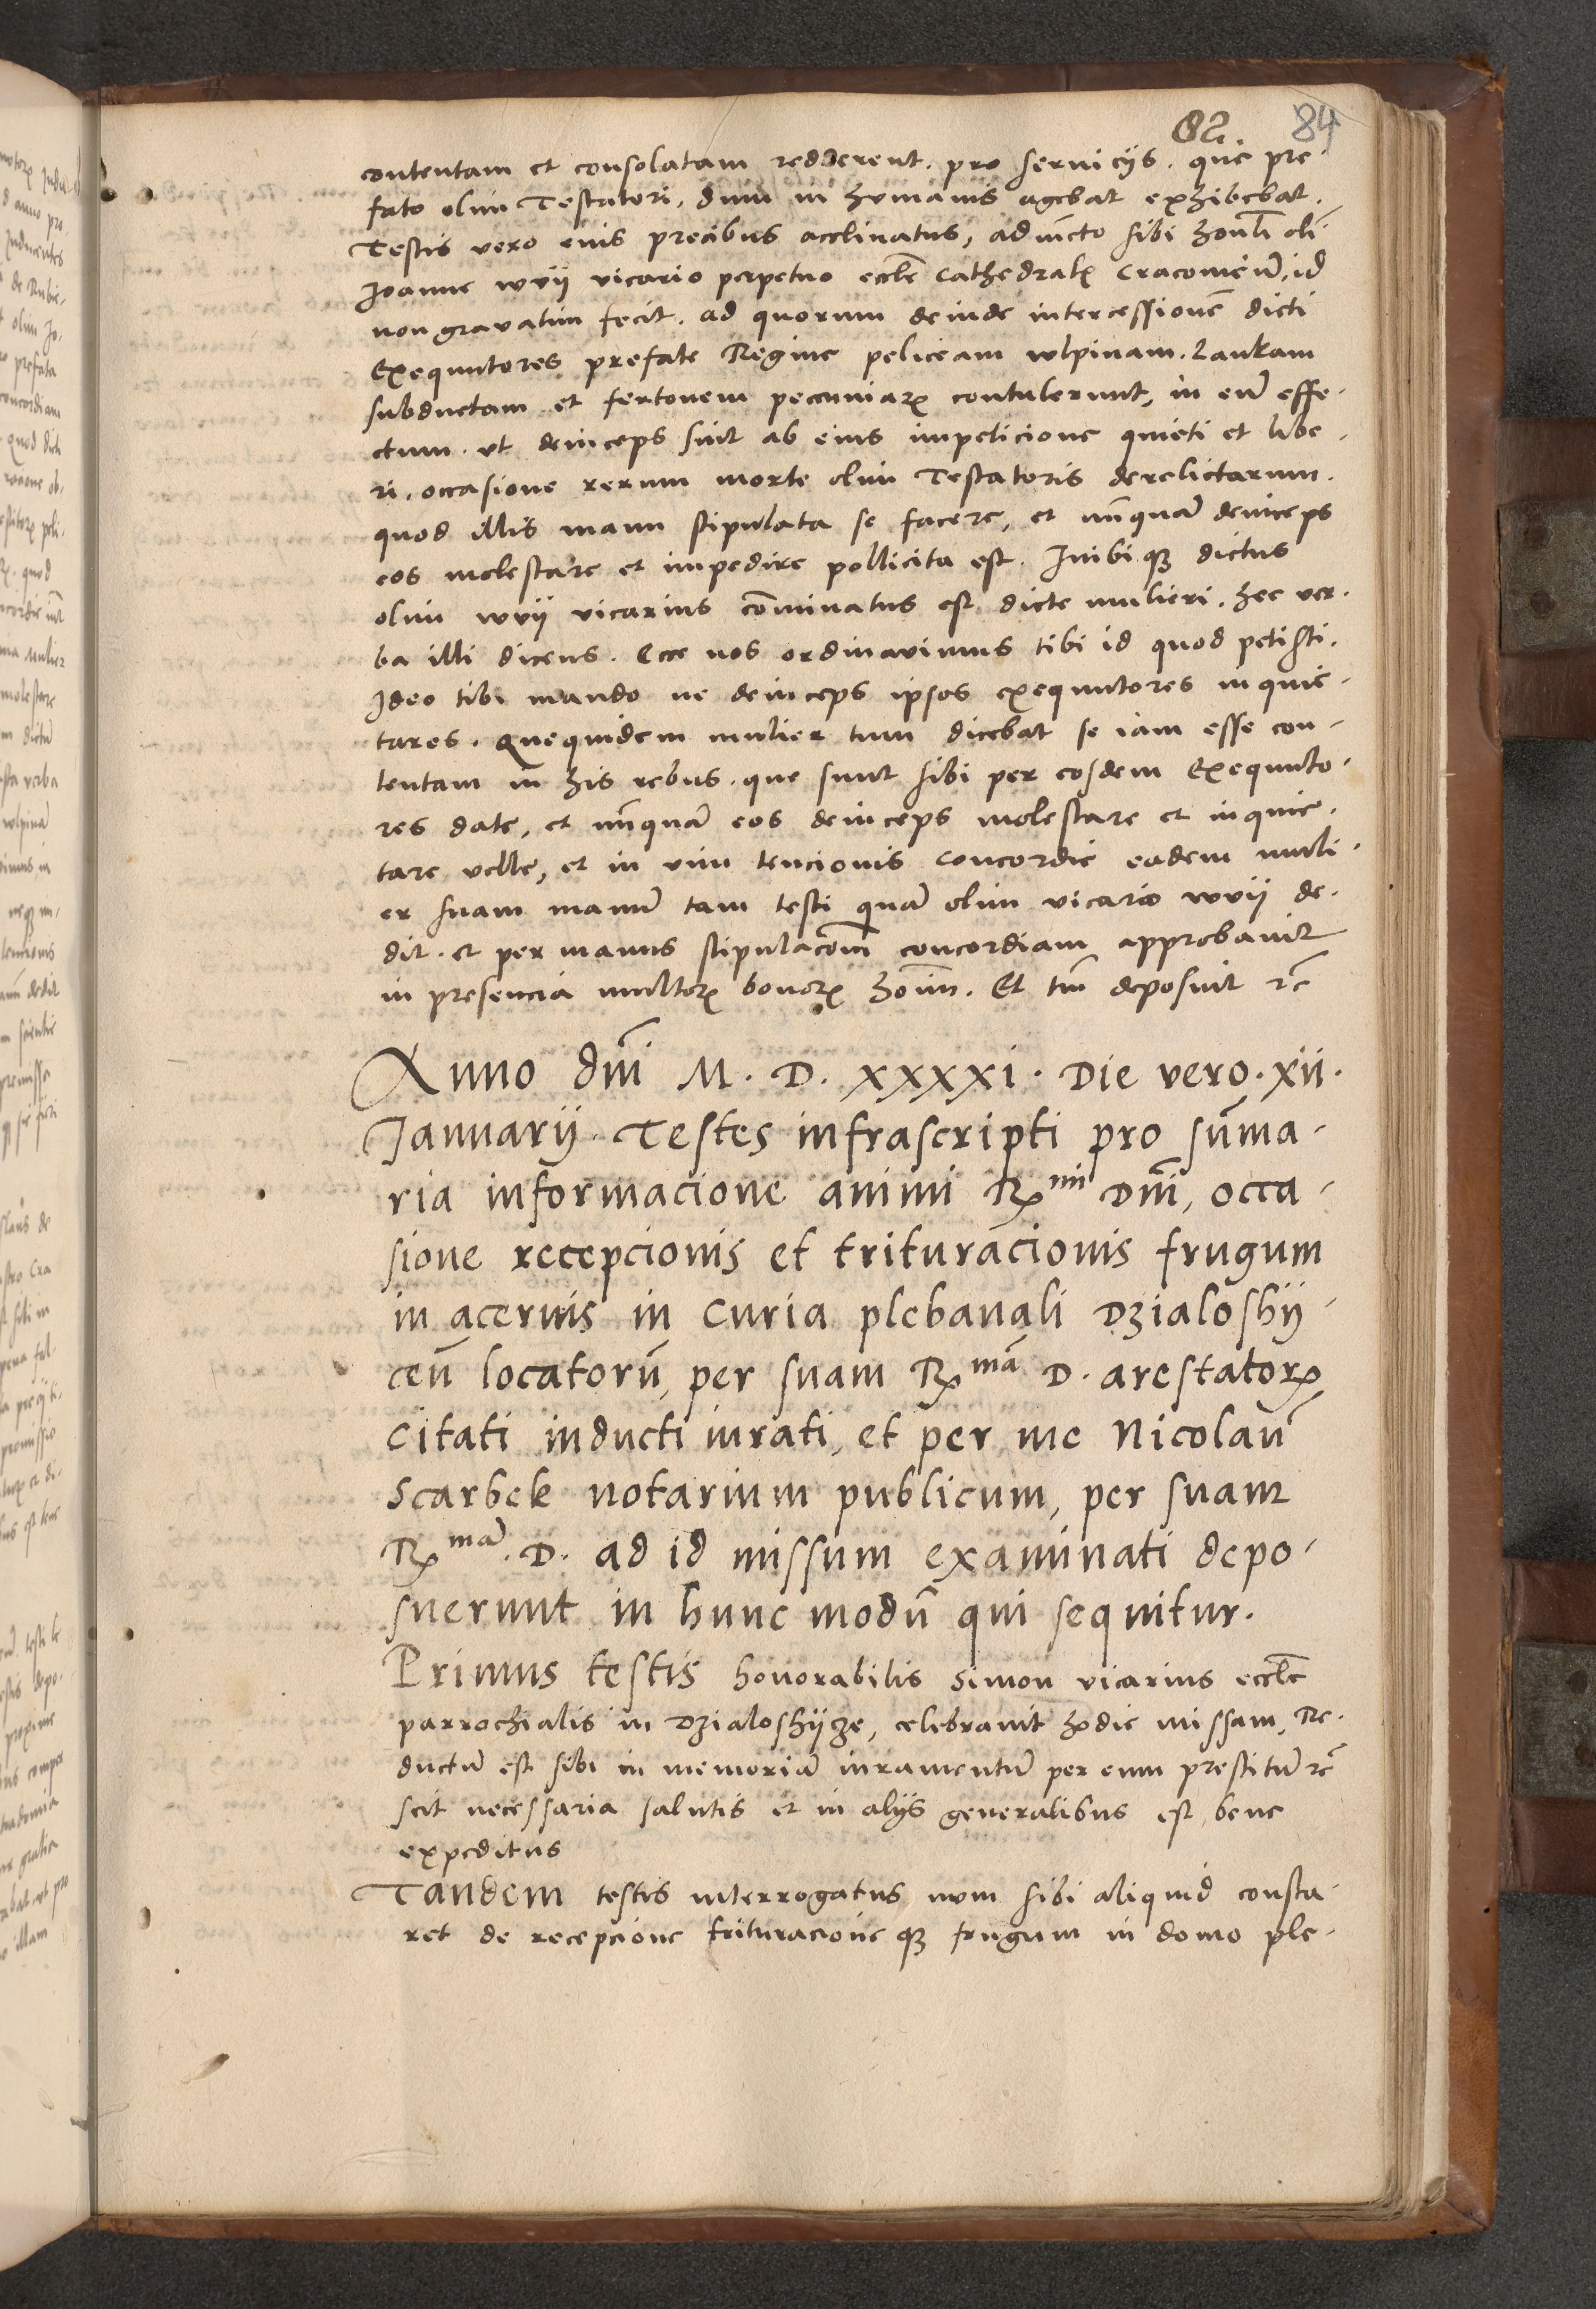 82. 84
contentam et consolatam redderent. pro seruicijs. que pre-
fato olim Testatori, dum in humanis agebat exhibebat.
Testis vero eius precibus acclinatus, adiu̅cto sibi hono̅li oli̅
Joanne wyij vicario perpetuo eccl̅e Cathedral̅ Cracouien̅, id
non gravatim fecit. ad quorum deinde intercessione̅ dicti
Exequutores prefate Regine peliceam wlpinam. Zaukam
subductam et fertonem peccuniarꝝ contulerunt, in eu̅ effe-
ctum. vt deinceps sint ab eius impeticione quieti et libe-
ri, occasione rerum morte olim Testatoris derelictarum.
quod illis manu stipulata se facere, et nu̅nqua̅ deinceps
eos molestare et impedire pollicita est. Inibiqꝫ dictus
olim wyij vicarius co̅minatus est dicte mulieri. hec ver-
ba illi dicens. Ecce nos ordinavimus tibi id quod petisti.
Ideo tibi mando ne deinceps ipsos exequutores inquie-
tares. Quequidem mulier tum dicebat se iam esse con-
tentam in his rebus. que sunt sibi per eosdem Exequuto-
res date, et nu̅nqua̅ eos deinceps molestare et inquie-
tare velle, et in vim tencionis concordie eadem muli-
er suam manu̅ tam testi qua̅ olim vicario wyij de-
dit. et per manus stipulaco̅m concordiam approbauit
in presencia multorꝝ bonorꝝ ho̅im. Et tm̅ deposuit rc̅
Anno dn̅i M. D. XXXXI. Die vero. xii.
Januarij. Testes infrascripti pro su̅ma-
ria informacione animi Rᵐⁱ Dn̅i, occa-
sione recepcionis et trituracionis frugum
in aceruis in Curia plebanali Dzialoshij-
ceu̅ locatoru̅, per suam Rᵐᵃ̅ D. arestatorꝝ
citati inducti iurati, et per me Nicolau̅
Scarbek notarium publicum, per suam
Rᵐᵃ̅. D. ad id missum examinati depo-
suerunt in hunc modu̅ qui sequitur.
Primus testis honorabilis Simon vicarius eccl̅e
parrochialis in Dzialoshijcze, celebrauit hodie missam, Re-
ductu̅ est sibi in memoria̅ iuramentu̅ per eum prestitu̅ rc̅
scit necessaria salutis et in alijs generalibus est bene
expeditus
Tandem testis interrogatus num sibi aliquid consta-
ret de recepcione trituracioneqꝫ frugum in domo ple-